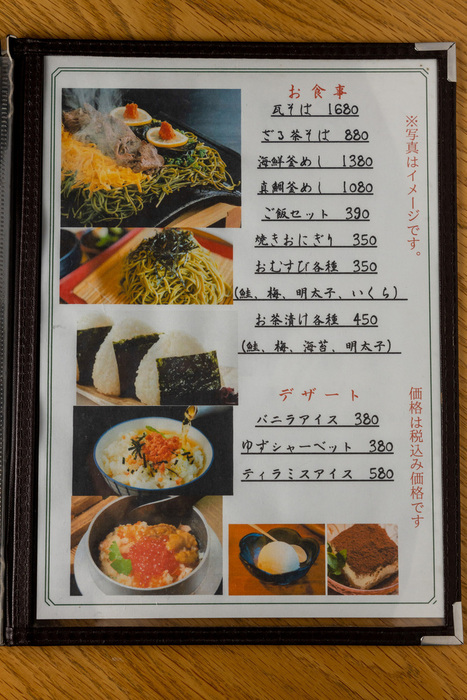 お食事
瓦そば 1680
ざる茶そば 880
海鮮釜めし 1380
真鯛釜めし 1080
ご飯セット 390
焼きおにぎり 350
おむすび各種 350
(鮭、梅、明太子、いくら)
お茶漬け各種 450
(鮭、梅、海苔、明太子)
デザート
バニラアイス 380
ゆずシャーベット 380
ティラミスアイス 580
※写真はイメージです。
価格は税込み価格です